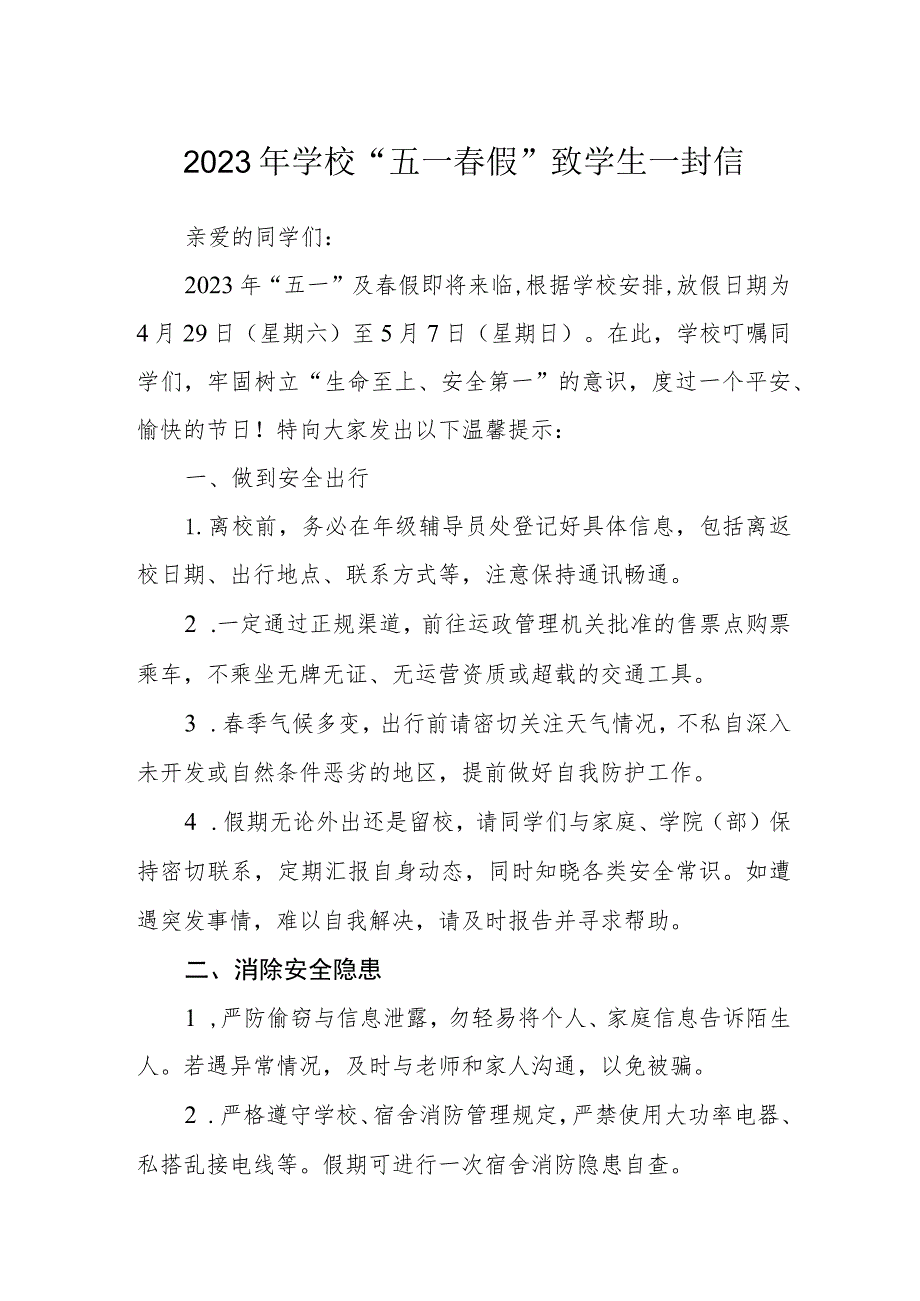 2023年学校“五一春假”致学生一封信
亲爱的同学们：
2023年“五一”及春假即将来临,根据学校安排,放假日期为
4月29日（星期六）至5月7日（星期日）。在此，学校叮嘱同
学们，牢固树立“生命至上、安全第一”的意识，度过一个平安、
愉快的节日！特向大家发出以下温馨提示：
一、做到安全出行
1.离校前，务必在年级辅导员处登记好具体信息，包括离返
校日期、出行地点、联系方式等，注意保持通讯畅通。
2 .一定通过正规渠道，前往运政管理机关批准的售票点购票
乘车，不乘坐无牌无证、无运营资质或超载的交通工具。
3 .春季气候多变，出行前请密切关注天气情况，不私自深入
未开发或自然条件恶劣的地区，提前做好自我防护工作。
4 .假期无论外出还是留校，请同学们与家庭、学院（部）保
持密切联系，定期汇报自身动态，同时知晓各类安全常识。如遭
遇突发事情，难以自我解决，请及时报告并寻求帮助。
二、消除安全隐患
1 ,严防偷窃与信息泄露，勿轻易将个人、家庭信息告诉陌生
人。若遇异常情况，及时与老师和家人沟通，以免被骗。
2 .严格遵守学校、宿舍消防管理规定，严禁使用大功率电器、
私搭乱接电线等。假期可进行一次宿舍消防隐患自查。